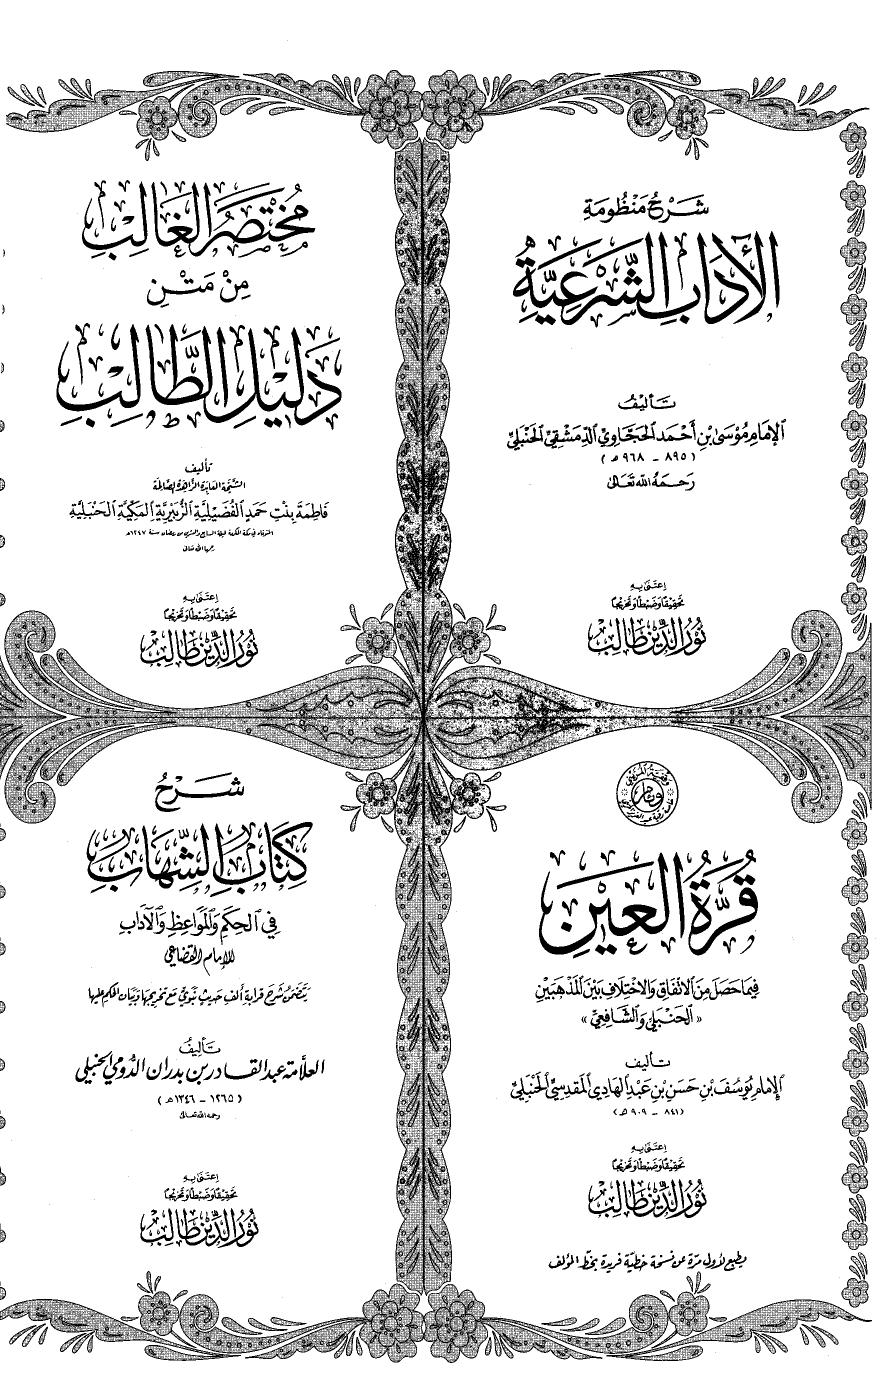 شَرْحُ مَنْظُومَةِ
الآدَابِ الشَّرْعِيَّةِ
تَأليفُ
الإمَامِ مُوْسَىٰ بْنِ أَحْمَدَ الحَجَّاوِيِّ الدِّمَشْقِيِّ الحَنْبَلِيِّ
(٨٩٥ - ٩٦٨ هـ)
رَحِمَهُ اللهُ تَعَالَىٰ
اِعْتَنَىٰ بِهِ
تَحْقِيْقًا وَضَبْطًا وَتَخْرِيْجًا
نُوْرُ الدِّيْن طَالِبْ
مُخْتَصَرُ الغَالِبِ
مِنْ مَتْنِ
دَلِيْلِ الطَّالِبِ
تأليف
الشَّيْخَة العَابِدَة الزَّاهِدَة الصَّالِحَة
فَاطِمَةَ بِنْتِ حَمَدٍ الفُضَيْلِيَّةِ الزُّبَيْرِيَّةِ المَكِّيَّةِ الحَنْبَلِيَّةِ
المتوفاة في مكة المكرمة ليلة السابع والعشرين من رمضان سنة ١٢٤٧هـ
رحمها الله تعالى
اِعْتَنَىٰ بِهِ
تَحْقِيْقًا وَضَبْطًا وَتَخْرِيْجًا
نُوْرُ الدِّيْن طَالِبْ
قُرَّةُ العَيْنِ
فِيْمَا حَصَلَ مِنَ الاتِّفَاقِ وَالاخْتِلَافِ بَيْنَ المَذْهَبَيْنِ
«الحَنْبَلِيِّ وَالشَّافِعِيِّ»
تَأليف
الإمَامِ يُوسُفَ بْنِ حَسَنِ بْنِ عَبْدِ الهَادِي المَقْدِسِيِّ الحَنْبَلِيِّ
(٨٤١ - ٩٠٩ هـ)
اِعْتَنَىٰ بِهِ
تَحْقِيْقًا وَضَبْطًا وَتَخْرِيْجًا
نُوْرُ الدِّيْن طَالِبْ
يطبع لأول مرّة عن نسخة خطيّة فريدة بخطّ المؤلف
شَرْحُ
كِتَابِ الشِّهَابِ
فِي الحِكَمِ وَالمَوَاعِظِ وَالآدَابِ
للإمام القضاعي
يَتَضَمَّنُ شَرْحَ قرابة ألف حديث نَبَوِيّ مَعَ تخريجها وَبَيَان الحكم عليها
تَأليفُ
العلَّامَة عبد القادر بن بدران الدُّومي الحنبلي
(١٢٦٥ - ١٣٤٦هـ)
رحمه الله تعالى
اِعْتَنَىٰ بِهِ
تَحْقِيْقًا وَضَبْطًا وَتَخْرِيْجًا
نُوْرُ الدِّيْن طَالِبْ